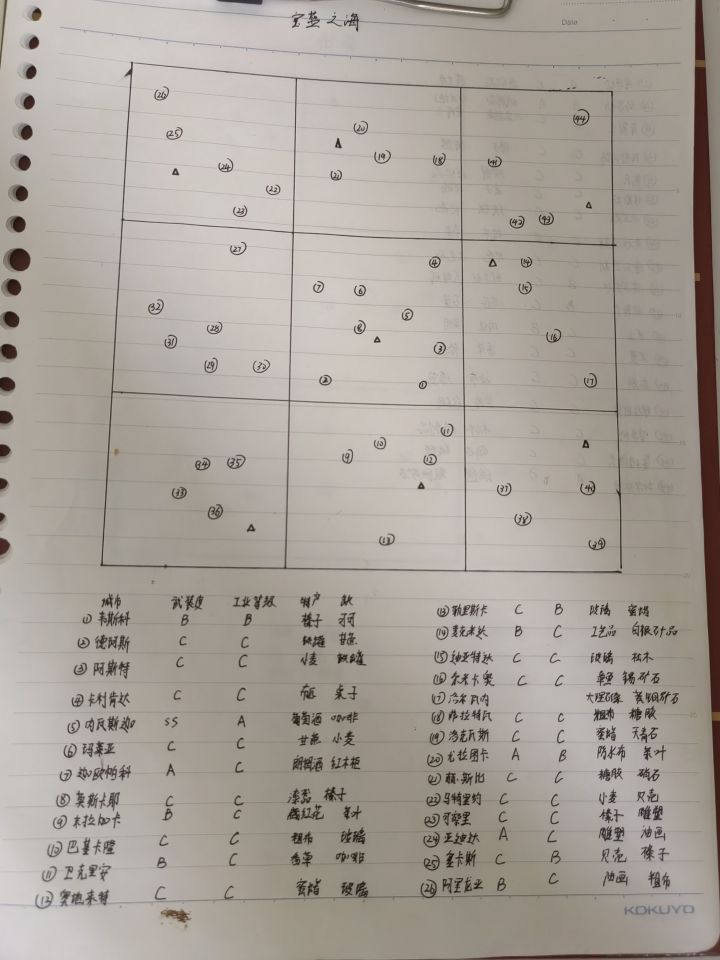 宝藏之海
Date
㉖
㉕
㉔
㉒
㉓
⑳
⑲
⑱
㉑
㊹
㊶
㊷
㊸
㉗
㉜
㉘
㉛
㉙
㉚
④
⑦
⑥
⑤
⑧
③
②
①
⑭
⑮
⑯
⑰
㉞
㉟
㉝
㊱
⑪
⑩
⑨
⑫
⑬
㊲
㊵
㊳
㊴
城市 武装度 工业等级 特产 缺
①韦斯科 B B 榛子 可可
②德阿斯 C C 铁罐 甘蔗
③阿斯特 C C 小麦 铁罐
④卡利肯达 C C 桌子
⑤内瓦斯迦 SS A 葡萄酒 咖啡
⑥玛莱亚 C C 甘蔗 小麦
⑦迦欧帕科 A C 朗姆酒 红木柜
⑧莫斯卡耶 C C 榛子
⑨木拉加卡 B C 藏红花 茶叶
⑩巴基卡隆 C C 粗布 玻璃
⑪卫克里安 B C 香草 咖啡
⑫奥地来特 C C 蜜蜡 玻璃
⑬勒里斯卡 C B 玻璃 蜜蜡
⑭麦克米达 B C 工艺品 白银矿品
⑮迪亚特达 C C 玻璃 松木
⑯尔米卡奥 C C 锡矿石
⑰冷尔瓦内 大理石像 黄铜矿石
⑱弗拉特瓦 C C 粗布 糖胶
⑲洛克瓦斯 C C 蜜蜡 天青石
⑳尤拉图卡 A B 防水布 茶叶
㉑萌·斯比 C C 糖胶 硝石
㉒马特里约 C C 小麦 贝壳
㉓可察里 C C 榛子 雕塑
㉔亚迪达 A C 雕塑 油画
㉕塞卡斯 C B 贝壳 榛子
㉖阿里龙亚 B C 油画 粗布
KOKUYO